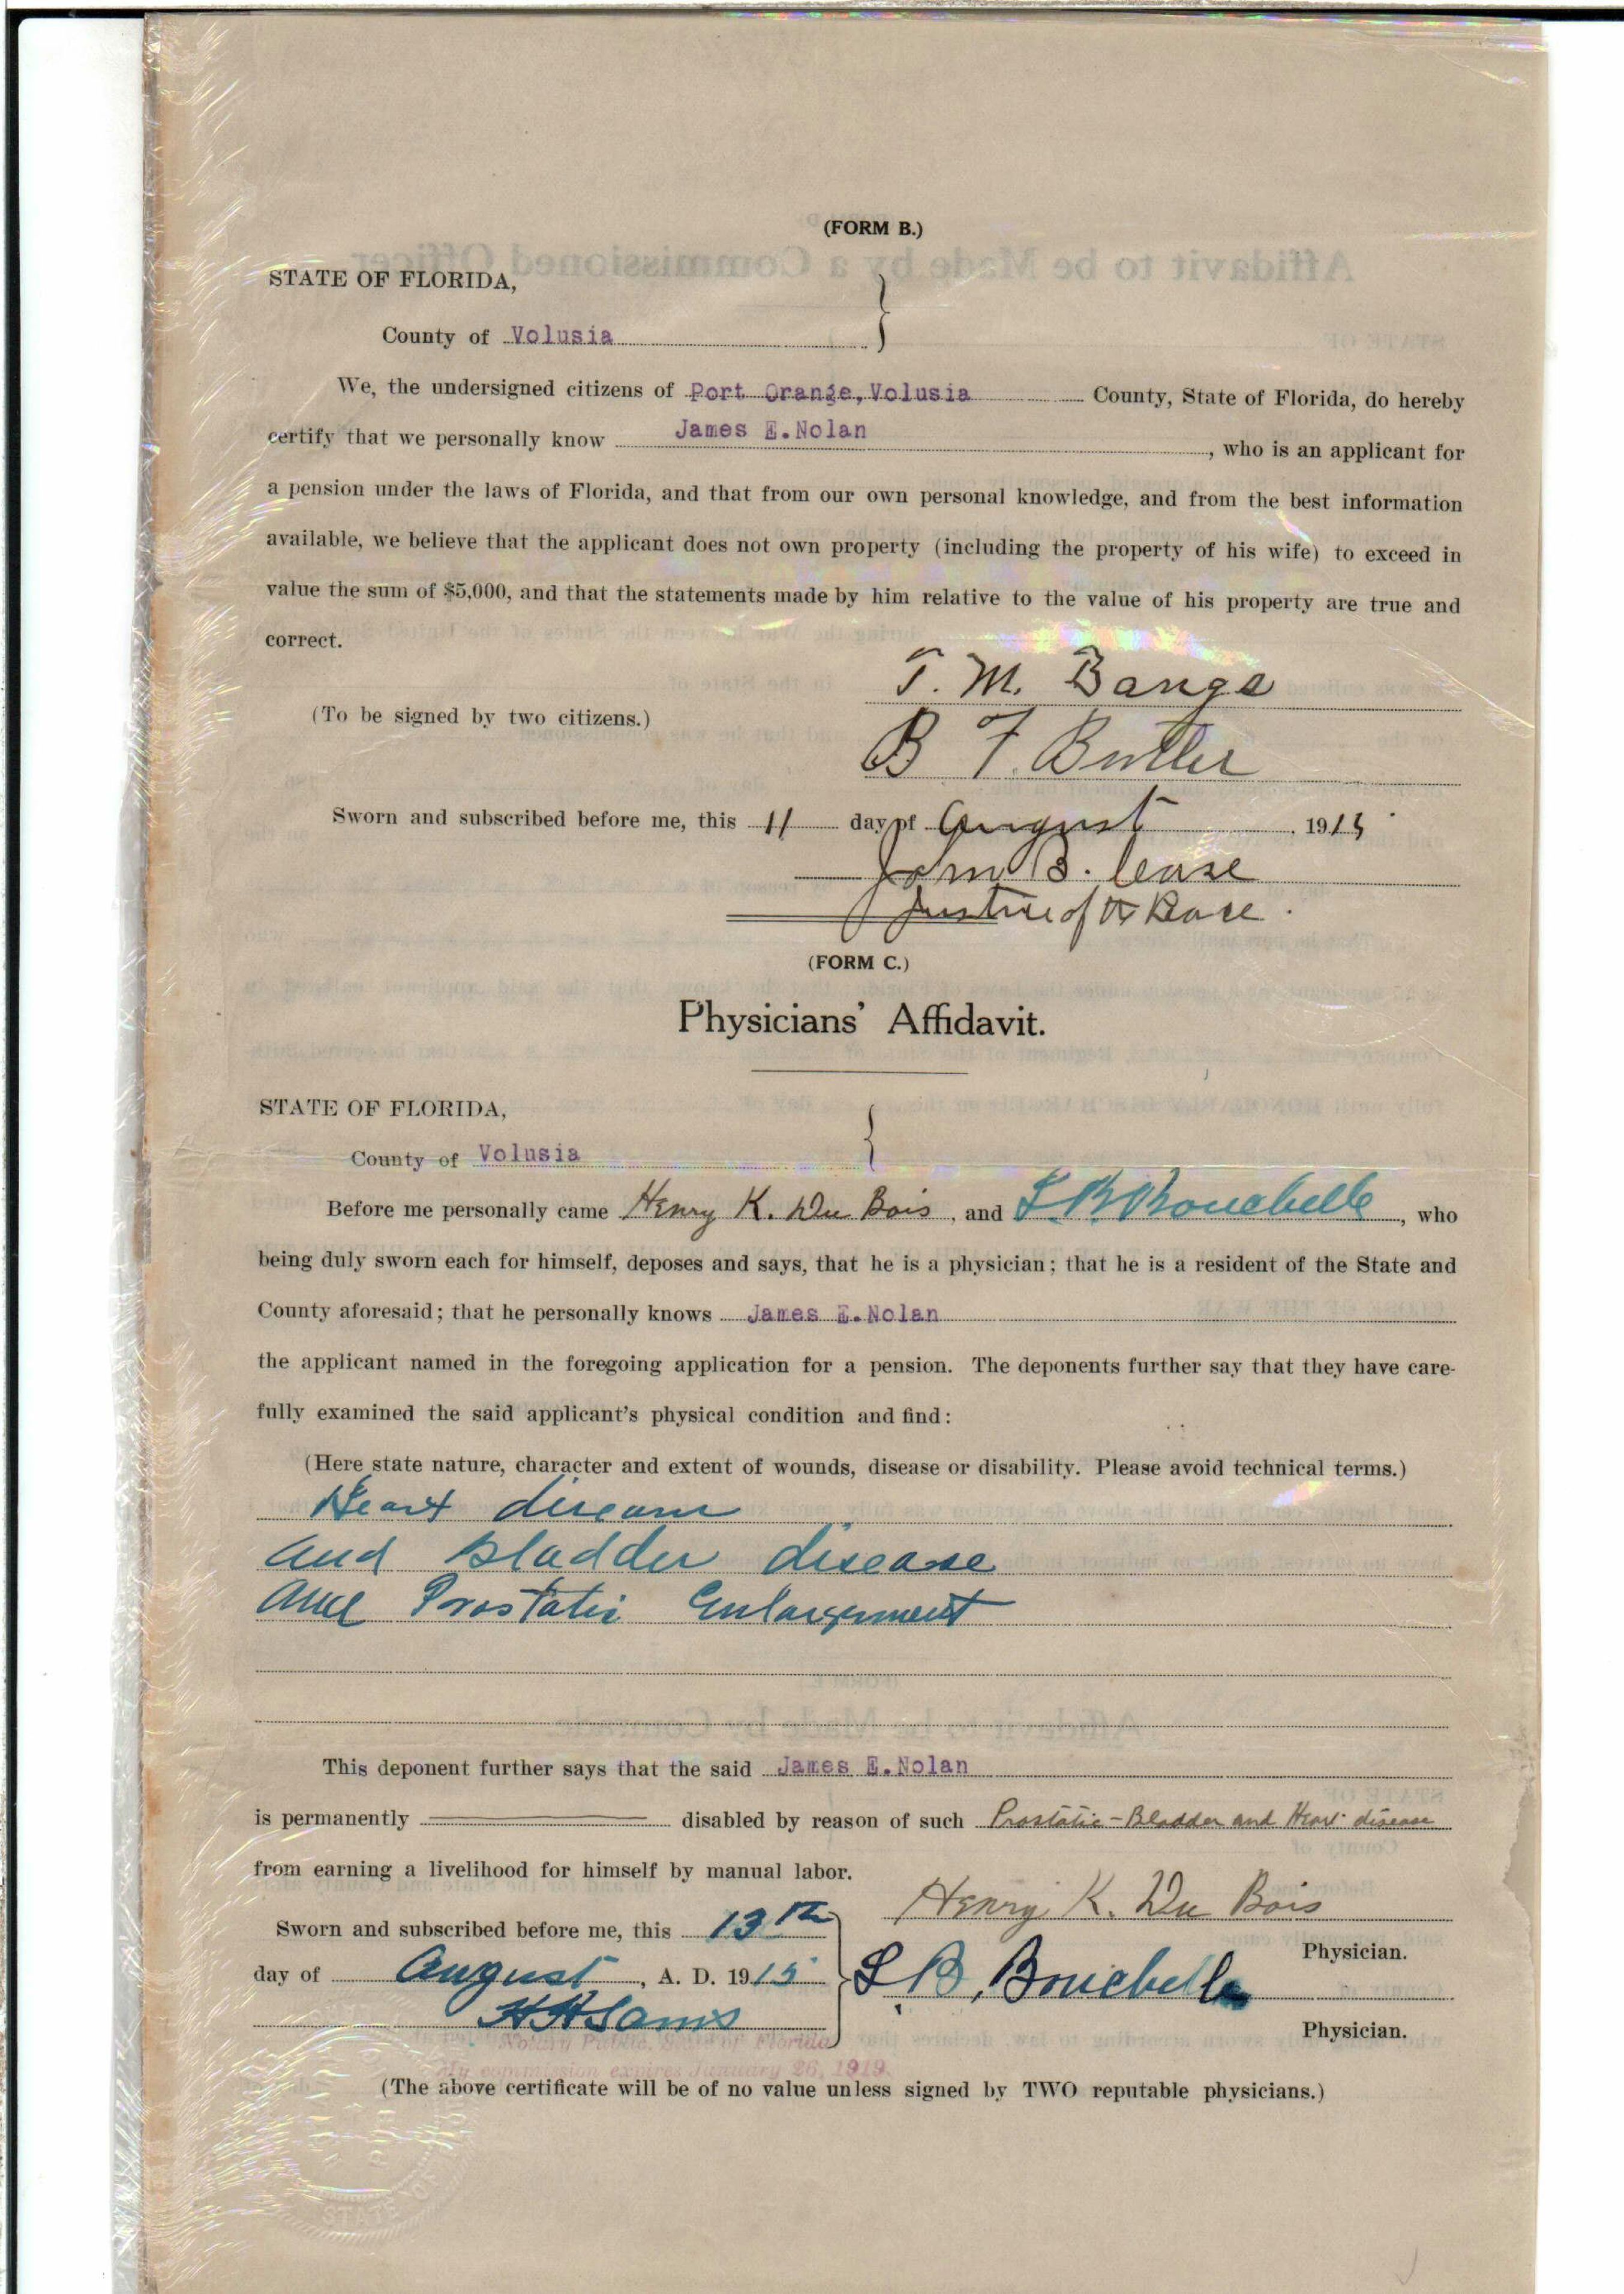 (FORM B.)
STATE OF FLORIDA,
County of Volusia
We, the undersigned citizens of Port Orange, Volusia County, State of Florida, do hereby
certify that we personally know James E. Nolan, who is an applicant for
a pension under the laws of Florida, and that from our own personal knowledge, and from the best information
available, we believe that the applicant does not own property (including the property of his wife) to exceed in
value the sum of $5,000, and that the statements made by him relative to the value of his property are true and
correct.
T. M. Bange
(To be signed by two citizens.)
B F. Butler
Sworn and subscribed before me, this 11 day of August, 1915
John B. Case
Justice of the Peace.
(FORM C.)
Physicians' Affidavit.
STATE OF FLORIDA,
County of Volusia
Before me personally came Henry K. Du Bois, and L B Bouchelle, who
being duly sworn each for himself, deposes and says, that he is a physician; that he is a resident of the State and
County aforesaid; that he personally knows James E. Nolan
the applicant named in the foregoing application for a pension. The deponents further say that they have care-
fully examined the said applicant's physical condition and find:
(Here state nature, character and extent of wounds, disease or disability. Please avoid technical terms.)
Heart disease
and Bladder disease
and Prostatic Enlargement
This deponent further says that the said James E. Nolan
is permanently disabled by reason of such Prostatic-Bladder and Heart disease
from earning a livelihood for himself by manual labor.
Henry K. Du Bois
Sworn and subscribed before me, this 13th
Physician.
day of August, A. D. 1915
L B. Bouchelle
H H Sams
Physician.
Notary Public, State of Florida
My commission expires January 26, 1919.
(The above certificate will be of no value unless signed by TWO reputable physicians.)